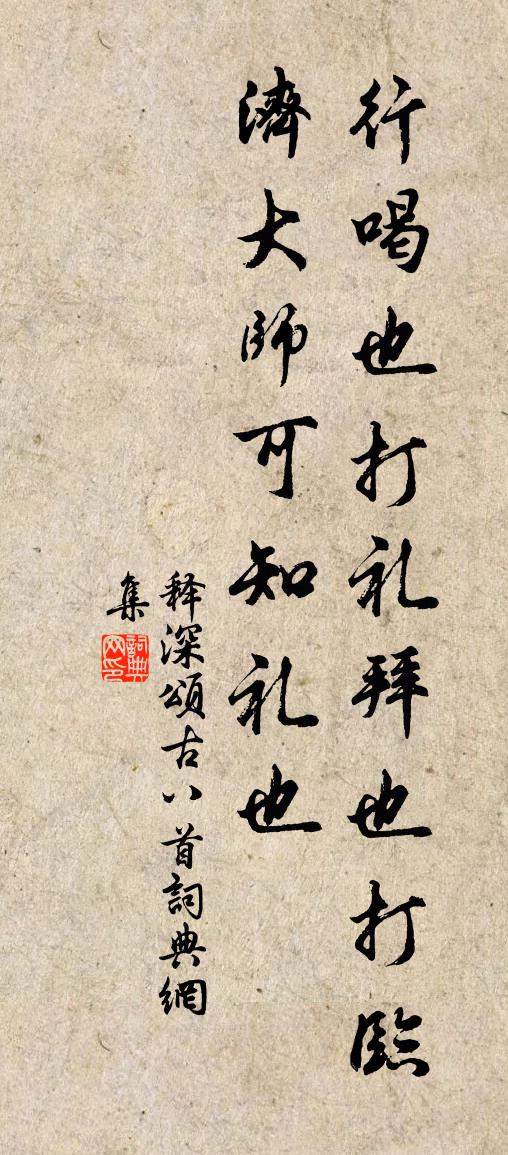 行喝也打礼拜也打臨
濟大師可知礼也
释深頌古八首詞典網
集
詞典网印